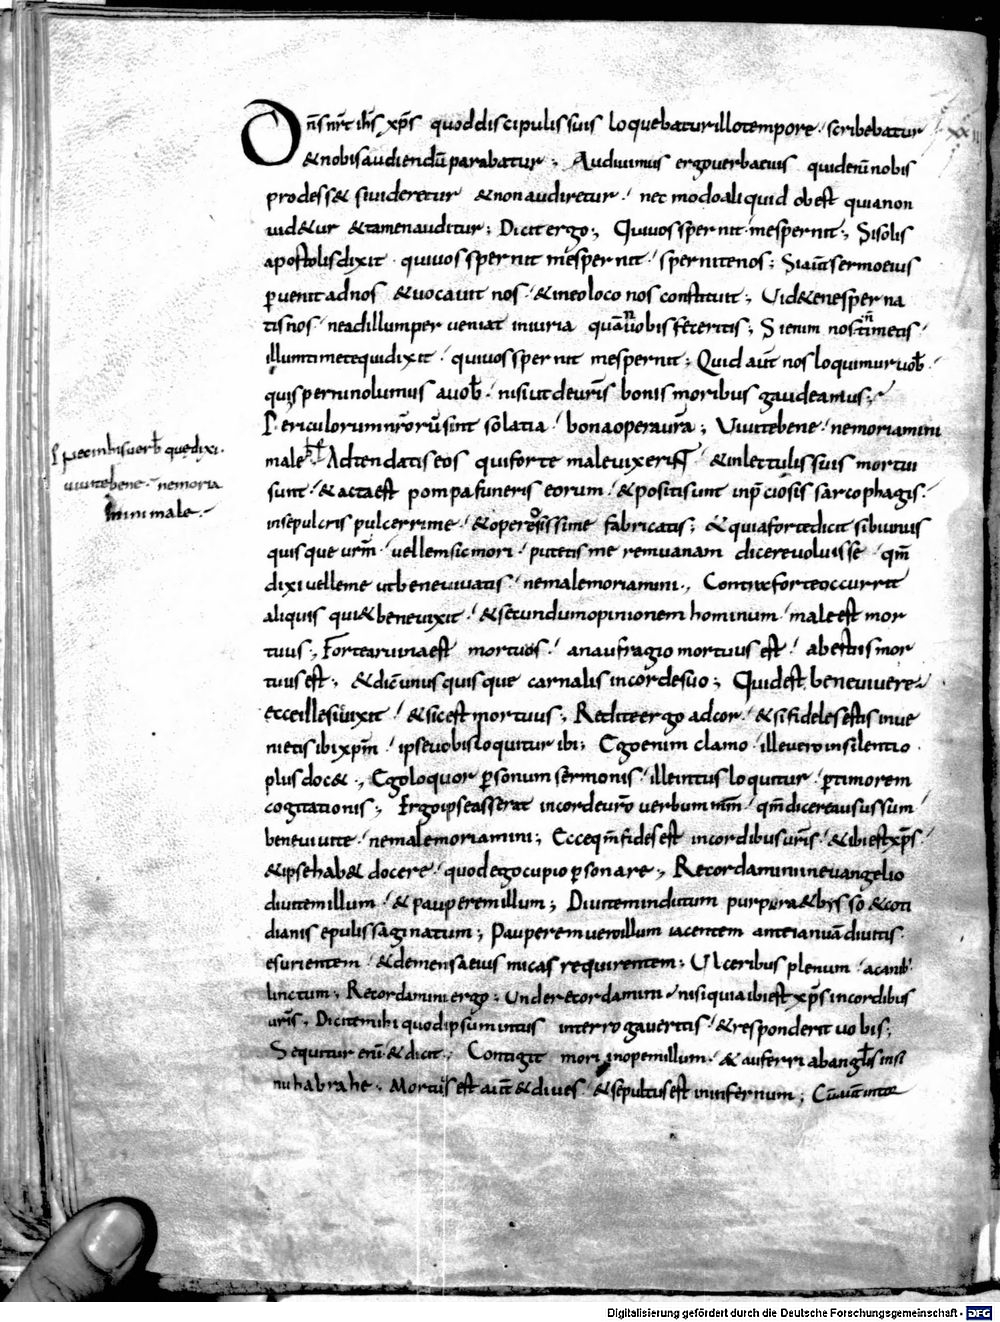 Dn̄s nr̄ ih̄s xp̄s quod discipulis suis loquebatur illo tempore · scribebatur
& nobis audiendū parabatur ; Audiuimus ergo uerba eius quid enī nobis
prodess& si uideretur & non audiretur · nec modo aliquid obest quia non
uid&ur & tamen auditur ; Dicit ergo ; Qui uos spernit · me spernit ; Si solis
apostolis dixit · qui uos spernit me spernit · spernite nos ; Si aut̄ sermo eius
puenit ad nos & uocauit nos · & in eo loco nos constituit ; Uid&e ne sperna
tis nos · ne ad illum perueniat iniuria quā nobis feceritis ; Si enim nos n̄ timetis ·
illum timete qui dixit · qui uos spernit me spernit ; Quid aut̄ nos loquimur uob̄ ·
qui sperni nolumus a uob̄ · nisi ut de uris̄ bonis moribus gaudeamus ;
Periculorum nr̄orū sint solatia · bona opera ura̅ ; Uiuite bene · ne moriamini
male · Adtendatis eos qui forte male uixerint · & in lectulis suis mortui
sunt · & acta est pompa funeris eorum · & positi sunt in p̄ciosis sarcophagis ·
in sepulcris pulcerrime · & operosissime fabricatis ; & quia forte dicit sibi unus
quisque urm̄ · uellem sic mori · putetis me rem uanam dicere uoluisse · qm̄
dixi uelle me ut bene uiuatis · ne male moriamini ; Contra forte occurrit
aliquis qui & bene uixit · & secundum opinionem hominum · male est mor
tuus ; Forte a ruina est mortuos · a naufragio mortuus est · a bestiis mor
tuus est ; & dic̄ unusquisque carnalis in corde suo ; Quid est bene uiuere ·
ecce ille sic uixit · & sic est mortuus ; Redite ergo ad cor · & si fideles estis inue
nietis ibi xpm̄ · ipse uobis loquitur ibi ; Ego enim clamo · ille uero in silentio ·
plus doc& ; Ego loquor p sonum sermonis · ille intus loquitur · p timorem
cogitationis ; Ergo ipse asserat in corde uro̅ uerbum mm̄ · qm̄ dicere ausus sum ·
bene uiuite · ne male moriamini ; Ecce qm̄ fides est in cordibus uris̄ · & ibi est xp̄s ·
& ipse hab& docere · quod ego cupio psonare ; Recordamini in euangelio
diuitem illum · & pauperem illum ; Diuitem inditum purpura & bysso & coti
dianis epulis saginatum ; Pauperem uero illum iacentem ante ianuā diuitis ·
esurientem · & de mensa eius micas requirentem ; Ulceribus plenum · a canib;
linctum ; Recordamini ergo ; Unde recordamini · nisi quia ibi est xp̄s in cordibus
uris̄ ; Dicite mihi quod ipsum intus interrogauertis · & responderit uobis ;
Sequitur enī & dicit ; Contigit mori inopem illum · & auferri ab anglis in si
nu habrahe ; Mortuus est aut̄ & diues · & sepultus est in infernum ;
uerb̄ que dixi ·
uiuite bene · ne moria
mini male ·
Digitalisierung gefördert durch die Deutsche Forschungsgemeinschaft · DFG